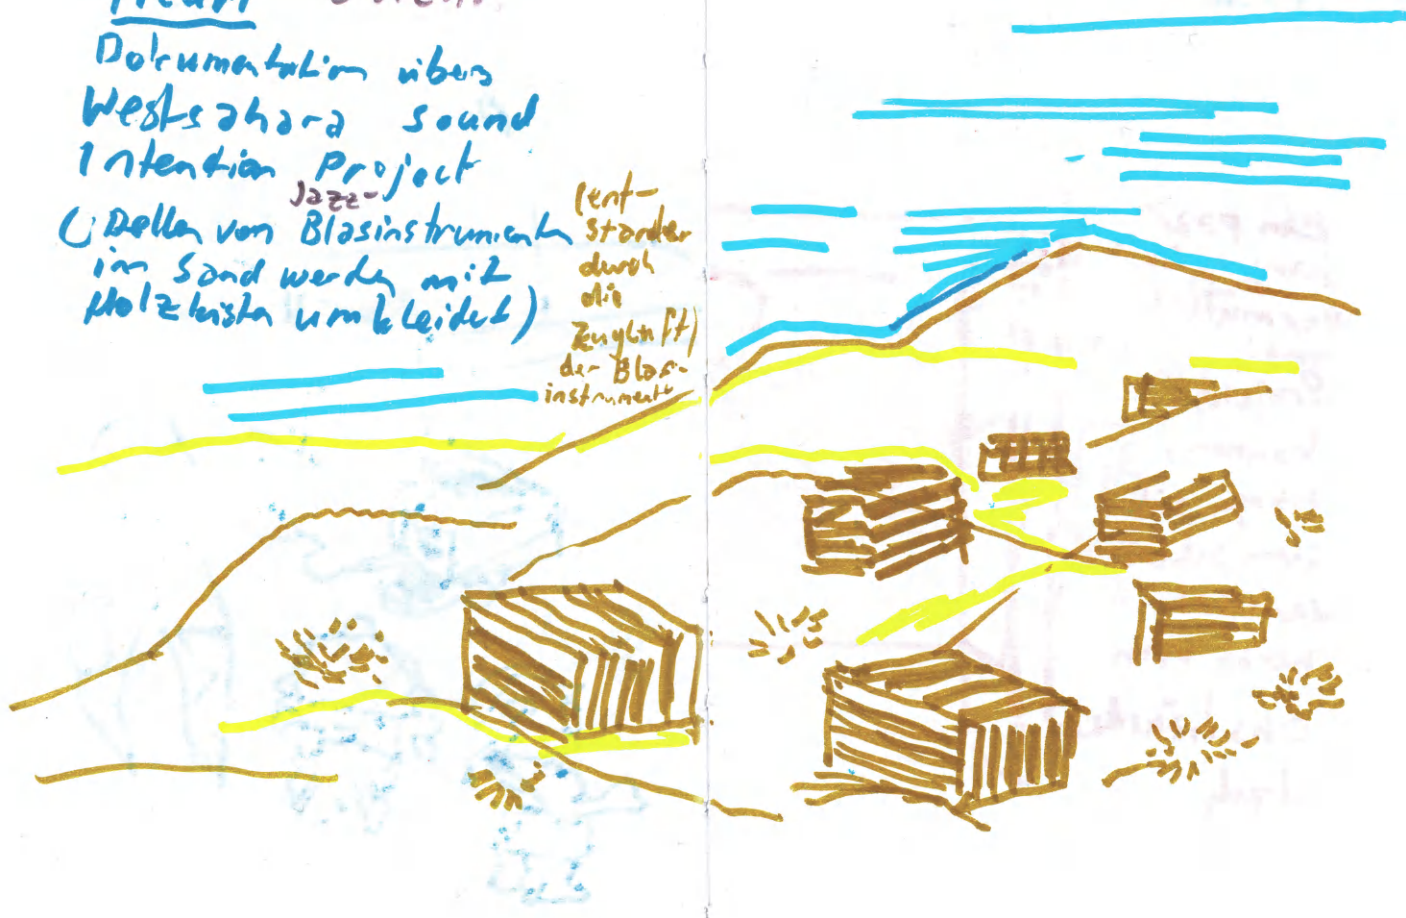 Traum
Dokumentation übers
Westsahara Sound
Intention Project
Jazz-
(Dellen von Blasinstrumenten
im Sand werden mit
Holzkisten umkleidet)
(ent-
standen
durch
die
Zugluft)
der Blas-
instrumente